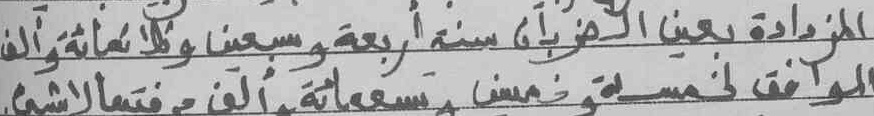 المزدادة بعين الخزبان سنة أربعة وسبعين وثلاثمائة وألف
الموافق لخمسة وخمسين وتسعمائة وألف مفتشا لاشيئا